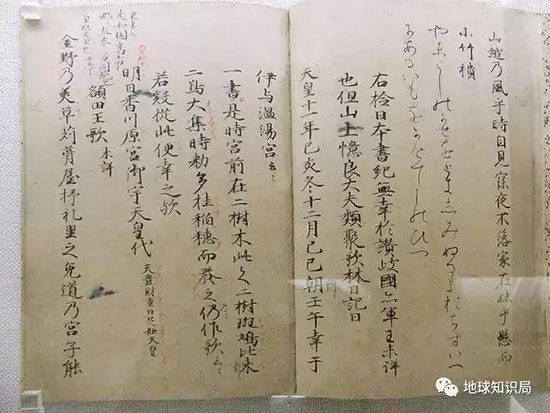 山越乃風乎時自見寐夜不落家在妹乎懸而
小竹櫃
やまこしのかせをときしみぬるよおちすいへ
にあるいもをかけてしのひつ
右檢日本書紀無幸於讃岐國亦軍王未詳
也但山上憶良大夫類聚歌林日記曰
天皇十一年己亥冬十二月己巳朔壬午幸于
伊与温湯宮云々
一書是時宮前在二樹木此之二樹斑鳩比米
二鳥大集時勅多挂稲穂而養之仍作歌云々
若疑從此便幸之歟
明日香川原宮御宇天皇代 天豊財重日足姫天皇
額田王歌 未詳
金野乃美草苅葺屋杼礼里之兎道乃宮子能
地球知识局